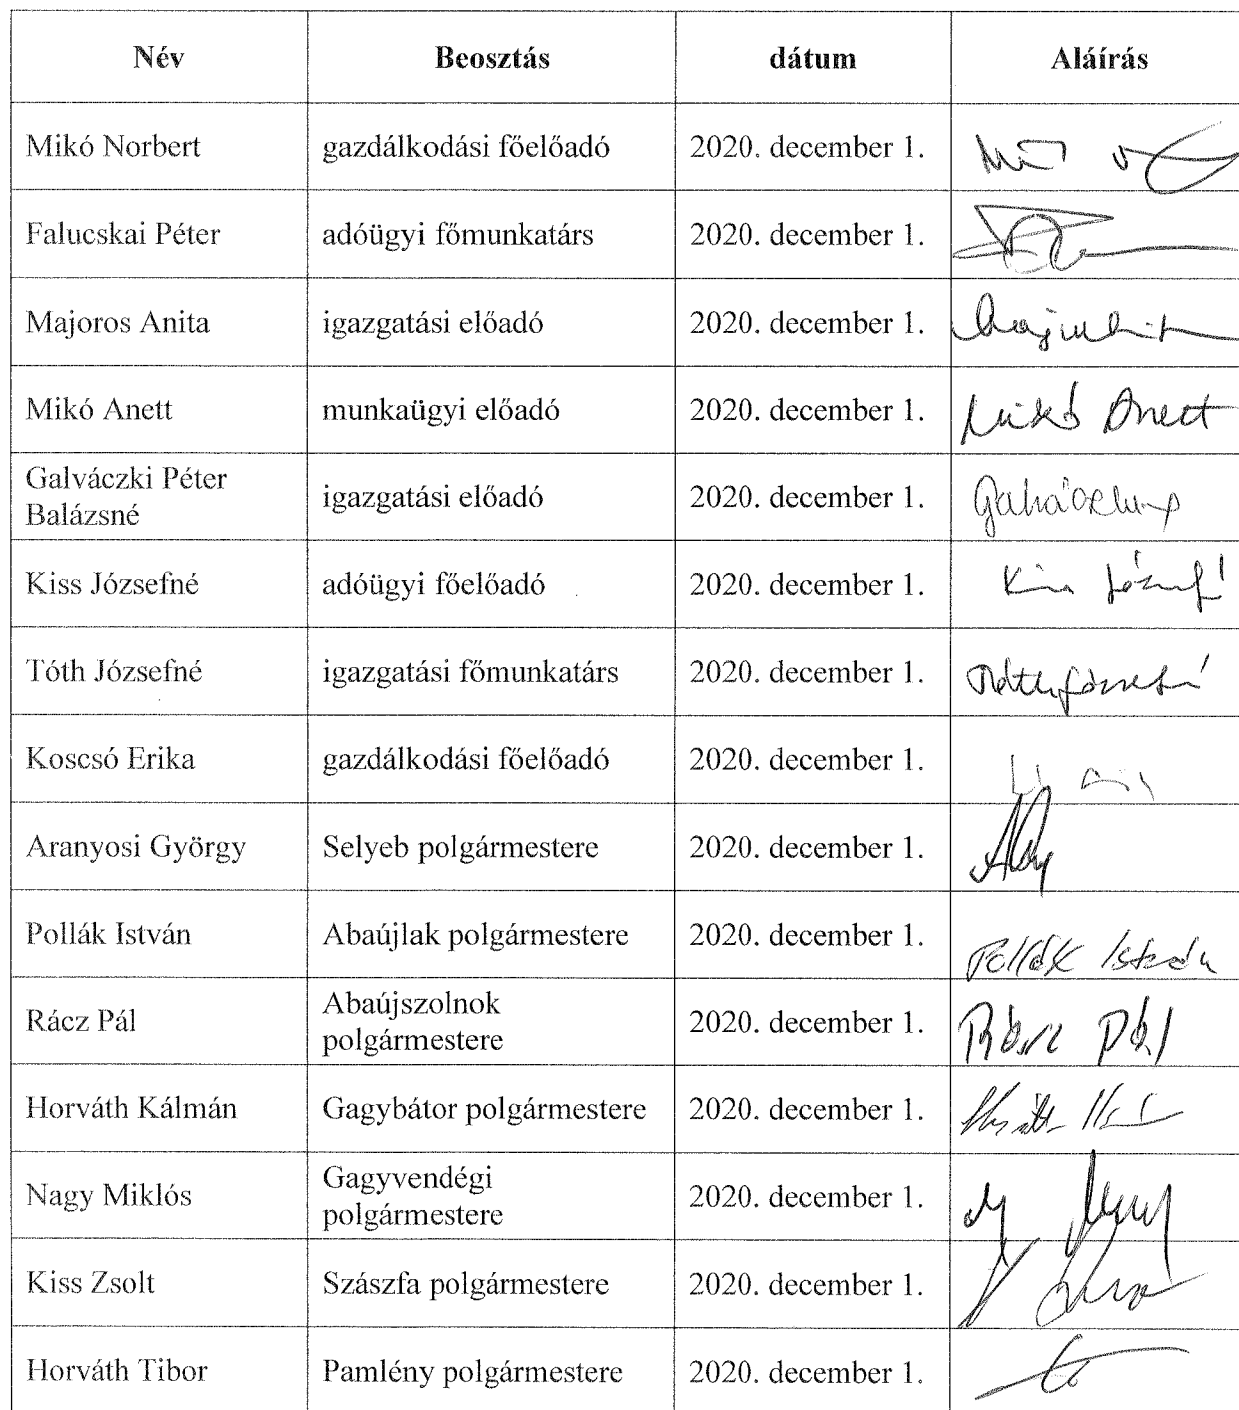 Név Beosztás dátum Aláírás
Mikó Norbert gazdálkodási főelőadó 2020. december 1.
Falucskai Péter adóügyi főmunkatárs 2020. december 1.
Majoros Anita igazgatási előadó 2020. december 1.
Mikó Anett munkaügyi előadó 2020. december 1. Mikó Anett
Galváczki Péter
Balázsné igazgatási előadó 2020. december 1.
Kiss Józsefné adóügyi főelőadó 2020. december 1.
Tóth Józsefné igazgatási főmunkatárs 2020. december 1. Tóth Józsefné
Koscsó Erika gazdálkodási főelőadó 2020. december 1.
Aranyosi György Selyeb polgármestere 2020. december 1.
Pollák István Abaújlak polgármestere 2020. december 1. Pollák István
Rácz Pál Abaújszolnok
polgármestere 2020. december 1. Rácz Pál
Horváth Kálmán Gagybátor polgármestere 2020. december 1.
Nagy Miklós Gagyvendégi
polgármestere 2020. december 1.
Kiss Zsolt Szászfa polgármestere 2020. december 1.
Horváth Tibor Pamlény polgármestere 2020. december 1.